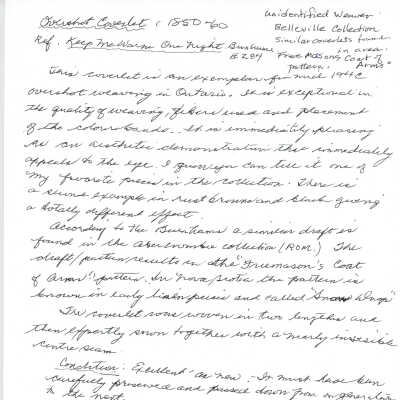 Overshot Coverlet, 1850-60
Unidentified Weaver
Belleville Collection
Similar coverlets found
in area.
Free Masons Coat of
Arms"
pattern.
Ref. Keep Me Warm One Night Burnhams
# 284
This coverlet is an exemplar for mid 19th C
overshot weaving in Ontario. It is exceptional in
the quality of weaving, fibers used and placement
of the colour bands. It is immediately pleasing
As an aesthetic demonstration that immediately
appeals to the eye. I guess you can tell it one of
my favorite pieces in the collection. There is
a example in rust browns and black giving
a totally different effect.
According to the Burnhams a similar draft is
found in the Abercrombie collection (ROM.) The
draft/pattern results in the "Freemason's Coat
of Arms" pattern. In Nova Scotia the pattern is
known in early linen pieces and called "Snow Drops"
The coverlet was woven in two lengths and
then expertly sewn together with a nearly invisible
centre seam
Condition: Excellent - as new - It must have been
carefully preserved and passed down from one generation
to the next.